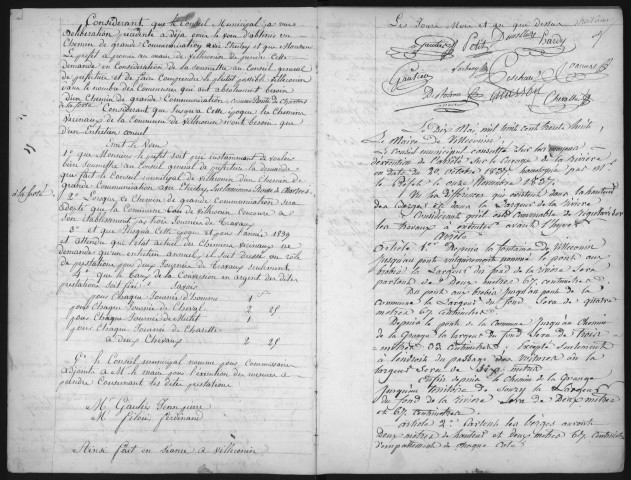 Considérant que le Conseil Municipal par sa
Délibération précédente a déjà émis le vœu d'obtenir un
Chemin de grande Communication avec Etréchy et que Monsieur
le préfet a promis au maire de villeconin de joindre cette
demande en Considération de la soumettre au conseil général
de préfecture et de faire Comprendre le plutôt possible villeconin
dans le nombre des Communes qui ont absolument besoin
d'un Chemin de grande Communication
Considérant que jusqu'à Cette époque les Chemins
vicinaux de la Commune de villeconin n'ont besoin que
d'un Entretien annuel
Emet le Vœu
1º que Monsieur le préfet soit prié instamment de vouloir
bien soumettre au Conseil général de préfecture la demande
que fait le Conseil municipal de villeconin d'un Chemin de
grande Communication avec Etréchy
à la ferté
2º Lorsque ce Chemin de grande Communication sera
adopté que la Commune de villeconin concoure à
son établissement par trois Journées de Travaux
3º et que Jusqu'à Cette époque et pour l'année 1839
et attendu que l'état actuel des Chemins vicinaux ne
demande qu'un entretien annuel, il soit dressé un rôle
de prestations pour deux Journées de Travaux seulement
4º que le taux de la Conversion en argent des dites
prestations soit fixé Savoir
pour Chaque Journée d'homme 1f
pour Chaque Journée de Cheval 2 25
pour Chaque Journée de Mulet 1
pour Chaque Journée de Charette
à deux Chevaux 2 25
5º le Conseil municipal nomme pour Commissaires
adjoints à M. le maire pour l'exécution des mesures à
prendre Concernant les dites prestations
M. Gautier Jean pierre
M. Petit Ferdinand
Ainsi fait en séance à villeconin
Les Jours Mois et an que dessus
Gautier Petit Hardy
Gautier
Masson Chevallier
Le Dix Mai mil huit cent trente huit
Le Maire de Villeconin
Le Conseil municipal consulté sur les mesures
d'exécution de l'arrêté sur le Curage de la rivière
en date du 20 octobre 1837 homologué par M.
le Préfet le onze Novembre 1837.
Vu la différence qui existait dans la hauteur
des berges et dans la Largeur de la rivière
Considérant qu'il est convenable de régulariser
les travaux à exécuter avant l'hyver
Arrête
Article 1er Depuis la fontaine de Villeconin
Jusqu'au pont vulgairement nommé le pont aux
frelié la Largeur du fond de la rivière Sera
partout de Deux mètres 67 centimètres
Du pont aux frelié Jusqu'au pont de la
Commune la Largeur du fond Sera de quatre
mètres 67 centimètres
Depuis le pont de la Commune Jusqu'au Chemin
de la Grange la largeur du fond Sera de trois
mètres 33 Centimètres, Excepté Seulement
à l'endroit du passage des voitures où la
largeur sera de Six mètres
Enfin depuis le Chemin de la Grange
Jusqu'au territoire de Souzy la Largeur
du fond de la rivière Sera de Deux mètres
et 67 centimètres
article 2º Partout les berges auront
Deux mètres de hauteur et Deux mètres 67 Centimètres
d'empattement de Chaque Côté